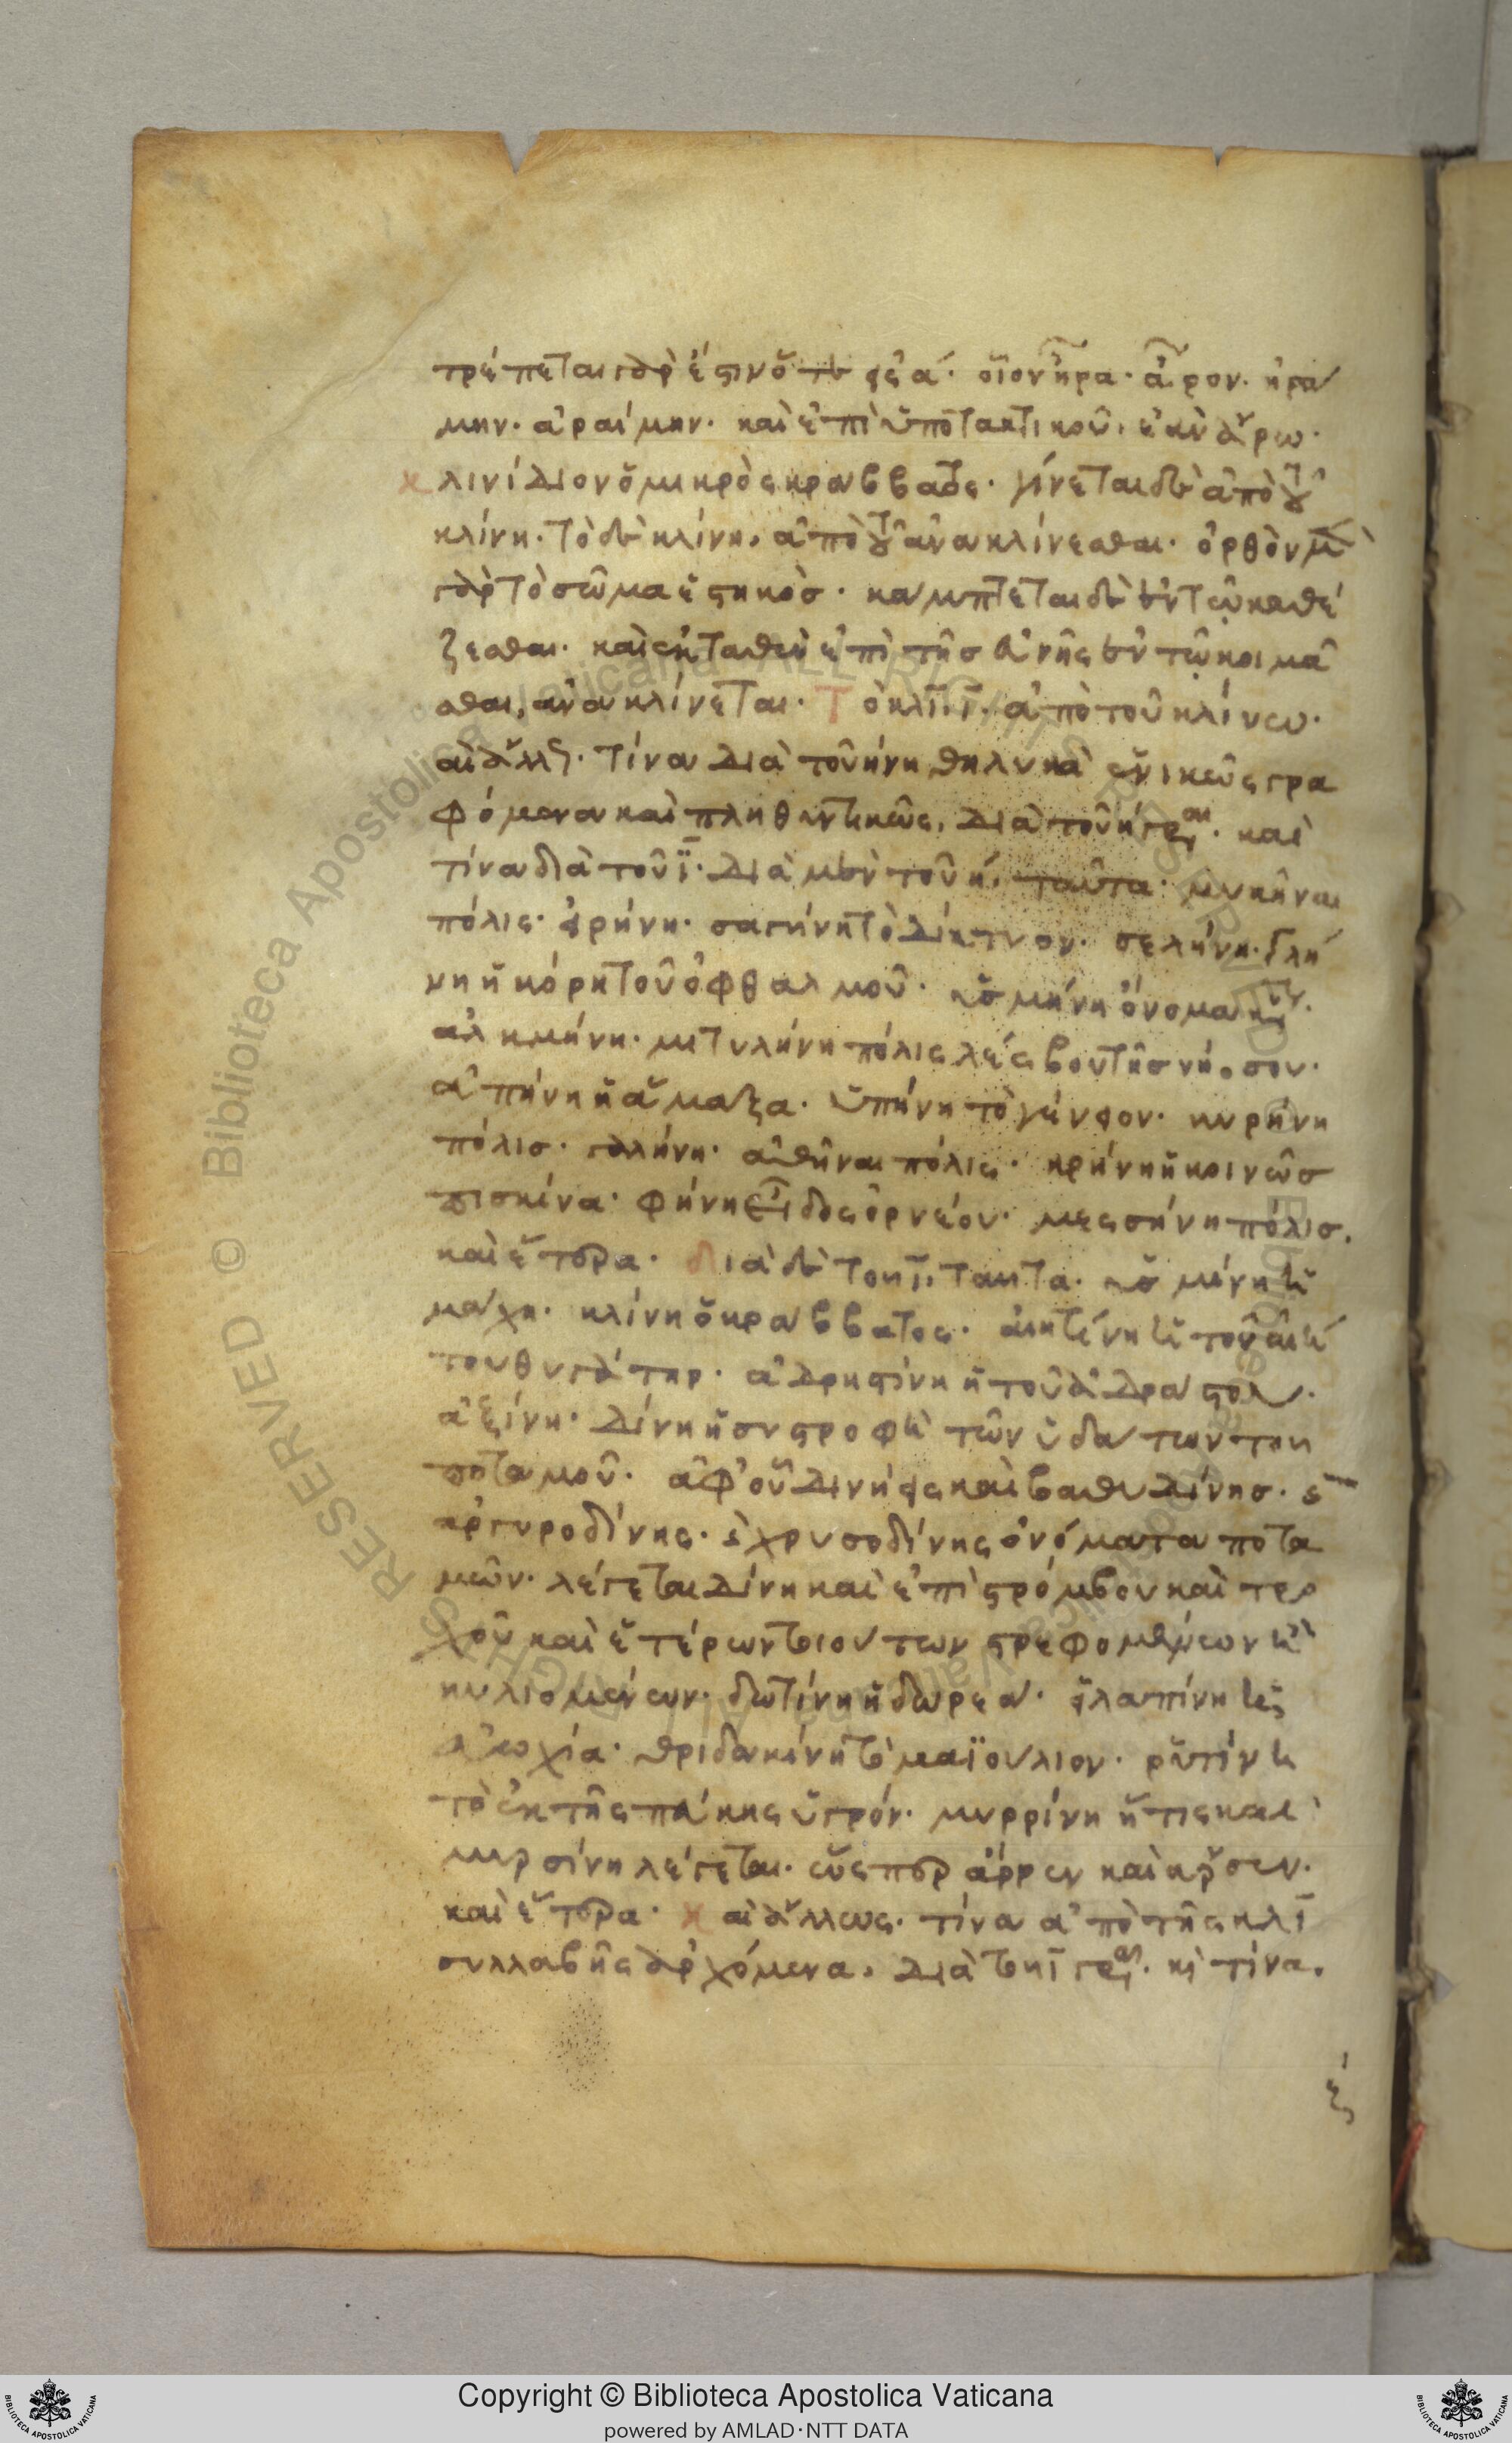 τρέπεται γὰρ ἔστιν ὅτε εἰς ἄ· οἷον ἦρα· ἆρον· ἠρά
μην· ἀραίμην· καὶ ἐπὶ ὑποτακτικοῦ, ἐὰν ἄρω·
κλινίδιον ὁ μικρὸς κράββατος· γίνεται δὲ ἀπὸ τοῦ
κλίνη· τὸ δὲ κλίνη, ἀπὸ τοῦ ἀνακλίνεσθαι· ὀρθὸν μὲν
γὰρ τὸ σῶμα ἑστηκός· κάμπτεται δὲ ἐν τῷ καθέ
ζεσθαι· καὶ ἐκταθὲν ἐπὶ τῆς εὐνῆς ἐν τῷ κοιμᾶ
σθαι, ἀνακλίνεται· Τὸ κλι ι, ἀπὸ τοῦ κλίνω·
καὶ ἄλλως· τίνα διὰ τοῦ ήνη θηλυκὰ ἑνικῶς γρα
φόμενα καὶ πληθυντικῶς, διὰ τοῦ ή γράφεται· καὶ
τίνα διὰ τοῦ ϊ· διὰ μὲν τοῦ ή, ταῦτα· μυκῆναι
πόλις· εἰρήνη· σαγήνη τὸ δίκτυον· σελήνη· γλή
νη ἡ κόρη τοῦ ὀφθαλμοῦ· ἰσμήνη ὄνομα κύριον·
ἀλκμήνη· μιτυλήνη πόλις λέσβου τῆς νήσου·
ἀπήνη ἡ ἅμαξα· ὑπήνη τὸ γένειον· κυρήνη
πόλις· γαλήνη· ἀθῆναι πόλις· κρήνη ἡ κοινῶς
πισκίνα· φήνη εἶδος ὀρνέου· μεσσήνη πόλις.
καὶ ἕτερα· διὰ δὲ τοῦ ϊ, ταῦτα· ὑσμίνη ἡ
μάχη· κλίνη ὁ κράββατος· ἀητίνη ἡ τοῦ ἀή
του θυγάτηρ· ἀδρηστίνη ἡ τοῦ ἀδράστου·
ἀξίνη· δίνη ἡ συστροφὴ τῶν ὑδάτων τοῦ
ποταμοῦ· ἀφ' οὗ δινήεις καὶ βαθυδίνης· καὶ
ἀργυροδίνης· καὶ χρυσοδίνης ὀνόματα ποτα
μῶν· λέγεται δίνη καὶ ἐπὶ στρόμβου καὶ τρο
χοῦ καὶ ἑτέρων τοιούτων στρεφομένων ἢ
κυλιομένων· δωτίνη ἡ δωρεά· εἰλαπίνη ἡ
εὐωχία· θριδακίνη τὸ μαϊούλιον· ῥυτίνη
τὸ ἐκ τῆς πεύκης ὑγρόν· μυρρίνη ἥτις καὶ
μυρσίνη λέγεται· ὥσπερ ἄρρεν καὶ ἄρσεν·
καὶ ἕτερα· καὶ ἄλλως· τίνα ἀπὸ τῆς κλι
συλλαβῆς ἀρχόμενα, διὰ τοῦ ϊ γράφεται· καὶ τίνα.